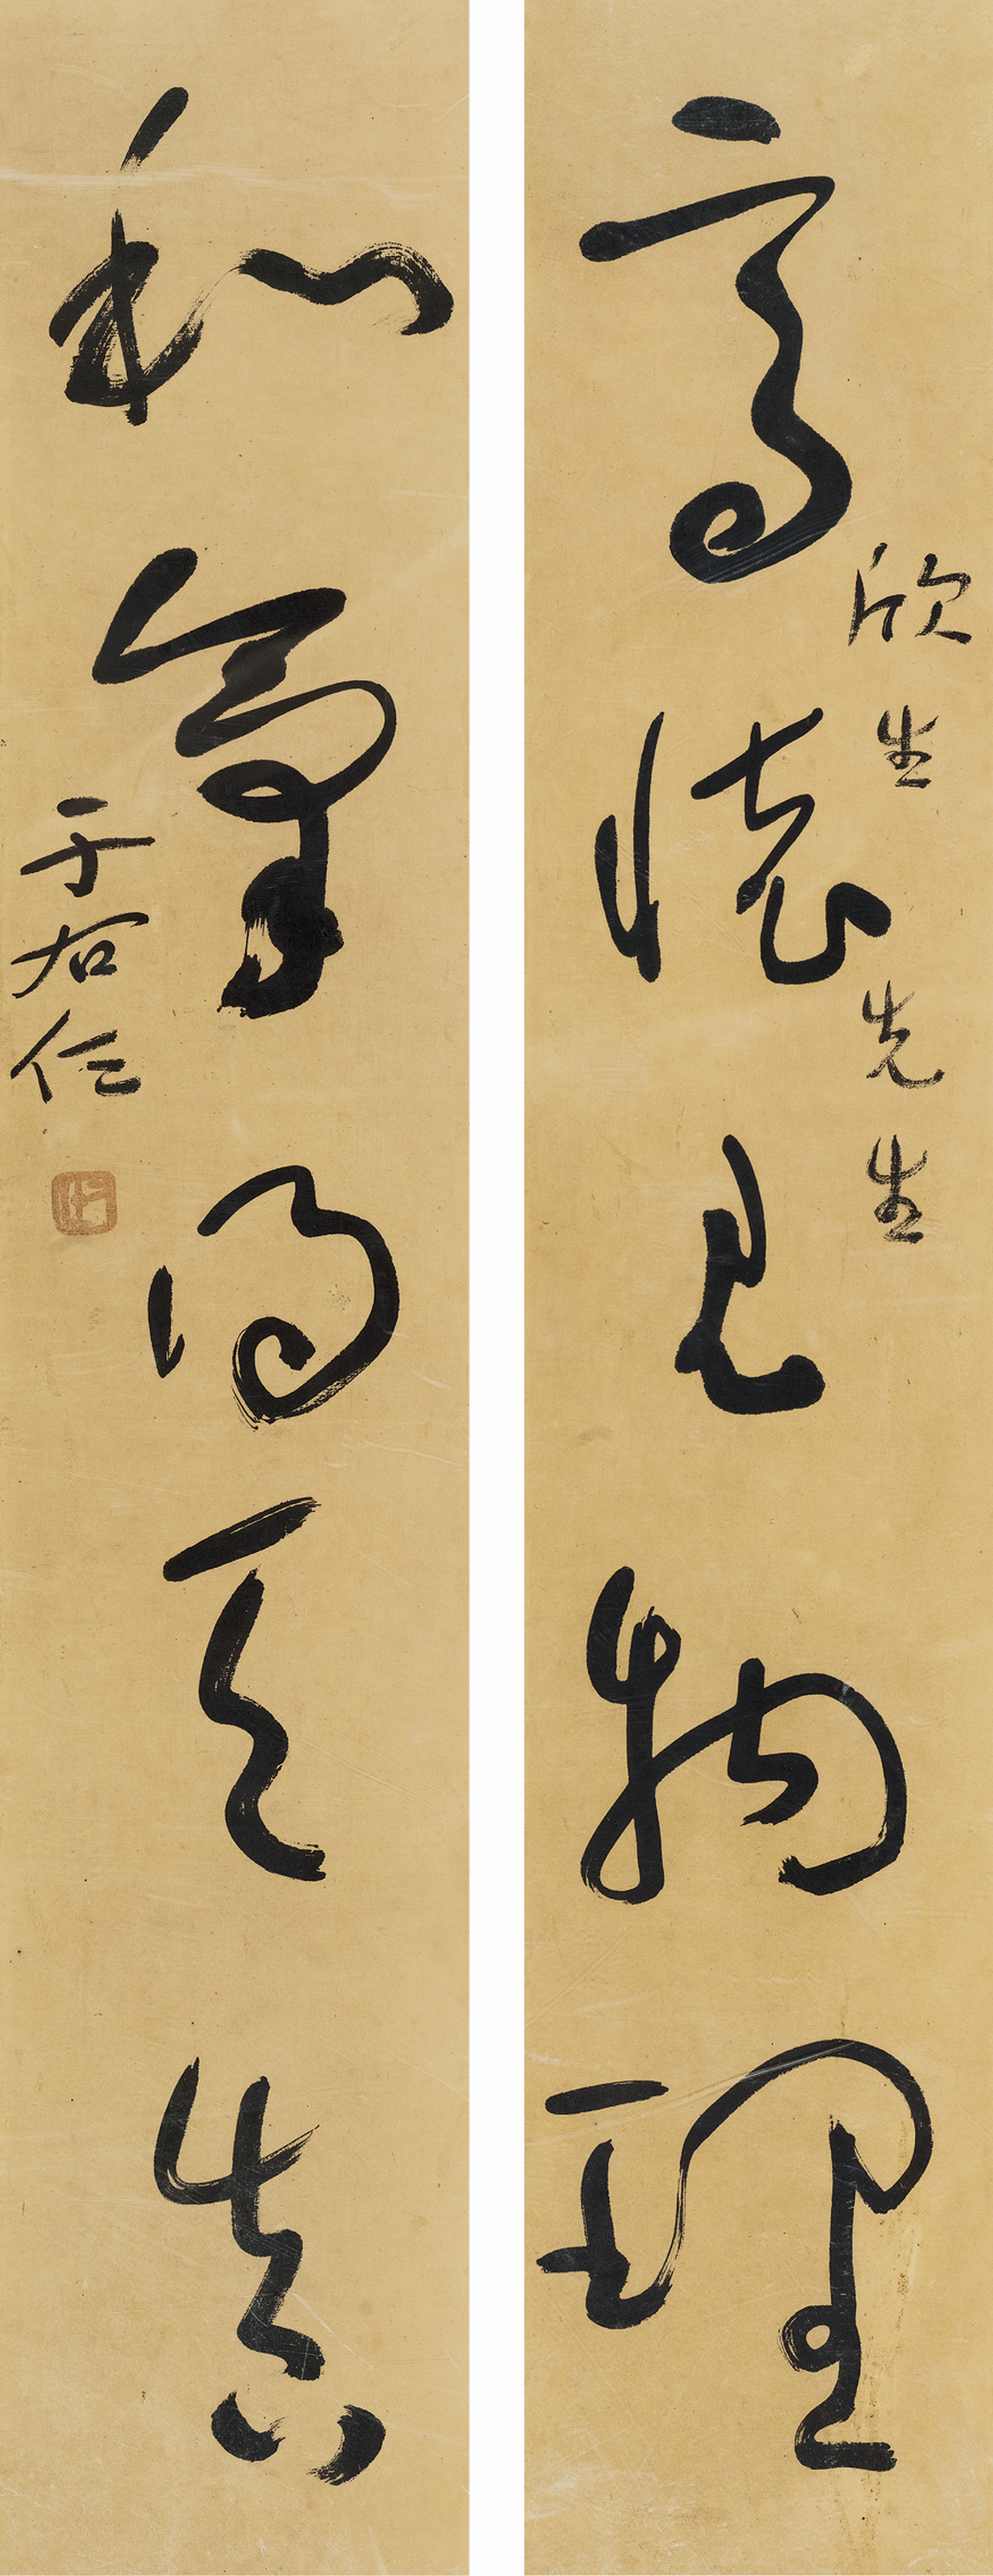 高懷見物理
欣生先生
和氣得天真
于右任